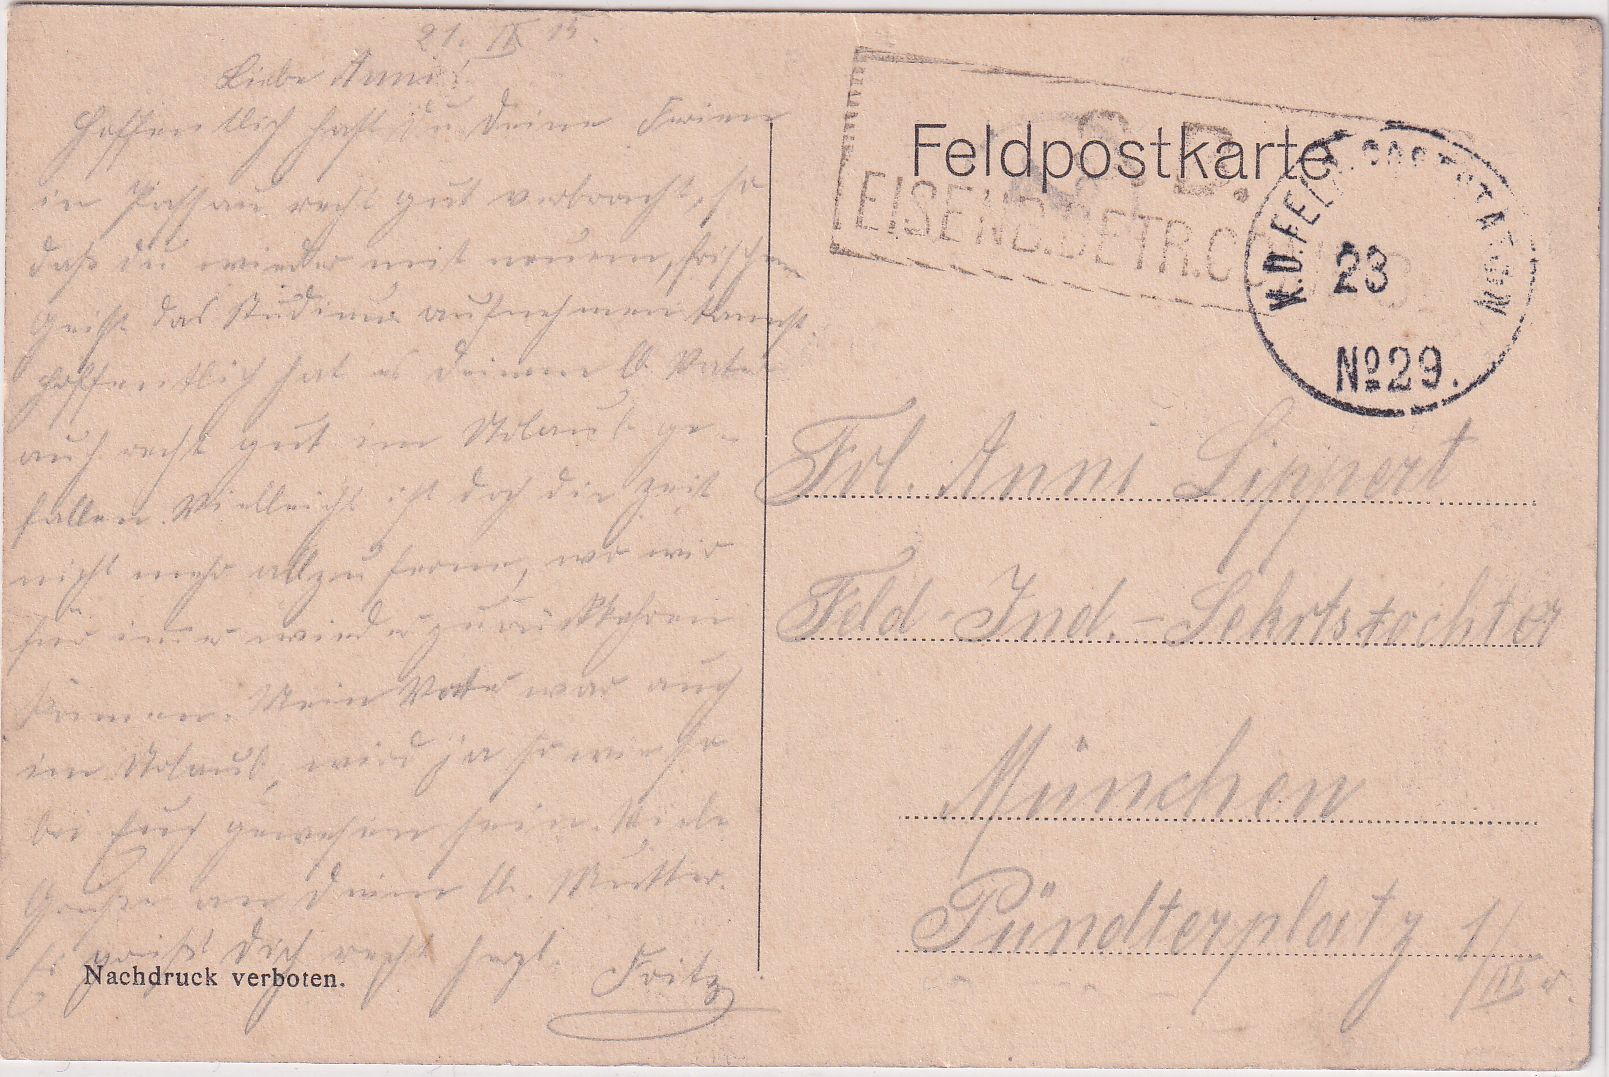 21. IX 15.
Liebe Anni!
Hoffentlich hast du deine Ferien
in Passau recht gut verbracht, so
daß du wieder mit neuem, frischem
Geist das Studium aufnehmen kannst.
Hoffentlich hat es deinem lb. Vater
auch recht gut im Urlaub ge-
fallen. Vielleicht ist doch die Zeit
nicht mehr allzu ferne, wo wir
für immer wieder zurückkehren
können. Mein Vater war auch
im Urlaub, wird ja sowieso
bei Euch gewesen sein. Viele
Grüße an deine lb. Mutter.
Es grüßt Dich recht herzl. Fritz
Nachdruck verboten.
Feldpostkarte
S. B.
EISENB.BETR.
K.D.FELDPOSTSTAT
23
Nº29.
Frl. Anni Lippert
Feld-Ind.-Sekrtstochter
München
Pündterplatz 1/III r.